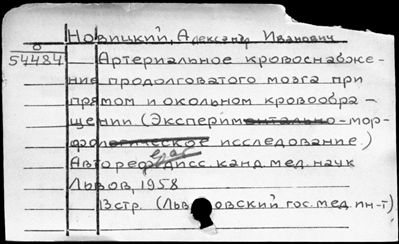 Новицкий, Александр Иванович
54484 Артериальное кровоснабже-
ние продолговатого мозга при
прямом и окольном кровообра-
щении (Эксперим<s>ентально</s>-мор-
фол<s>огическое</s> исследование.)
Автореф. дисс. канд. мед. наук
Львов, 1958
13 стр. (Львовский гос. мед. ин-т)